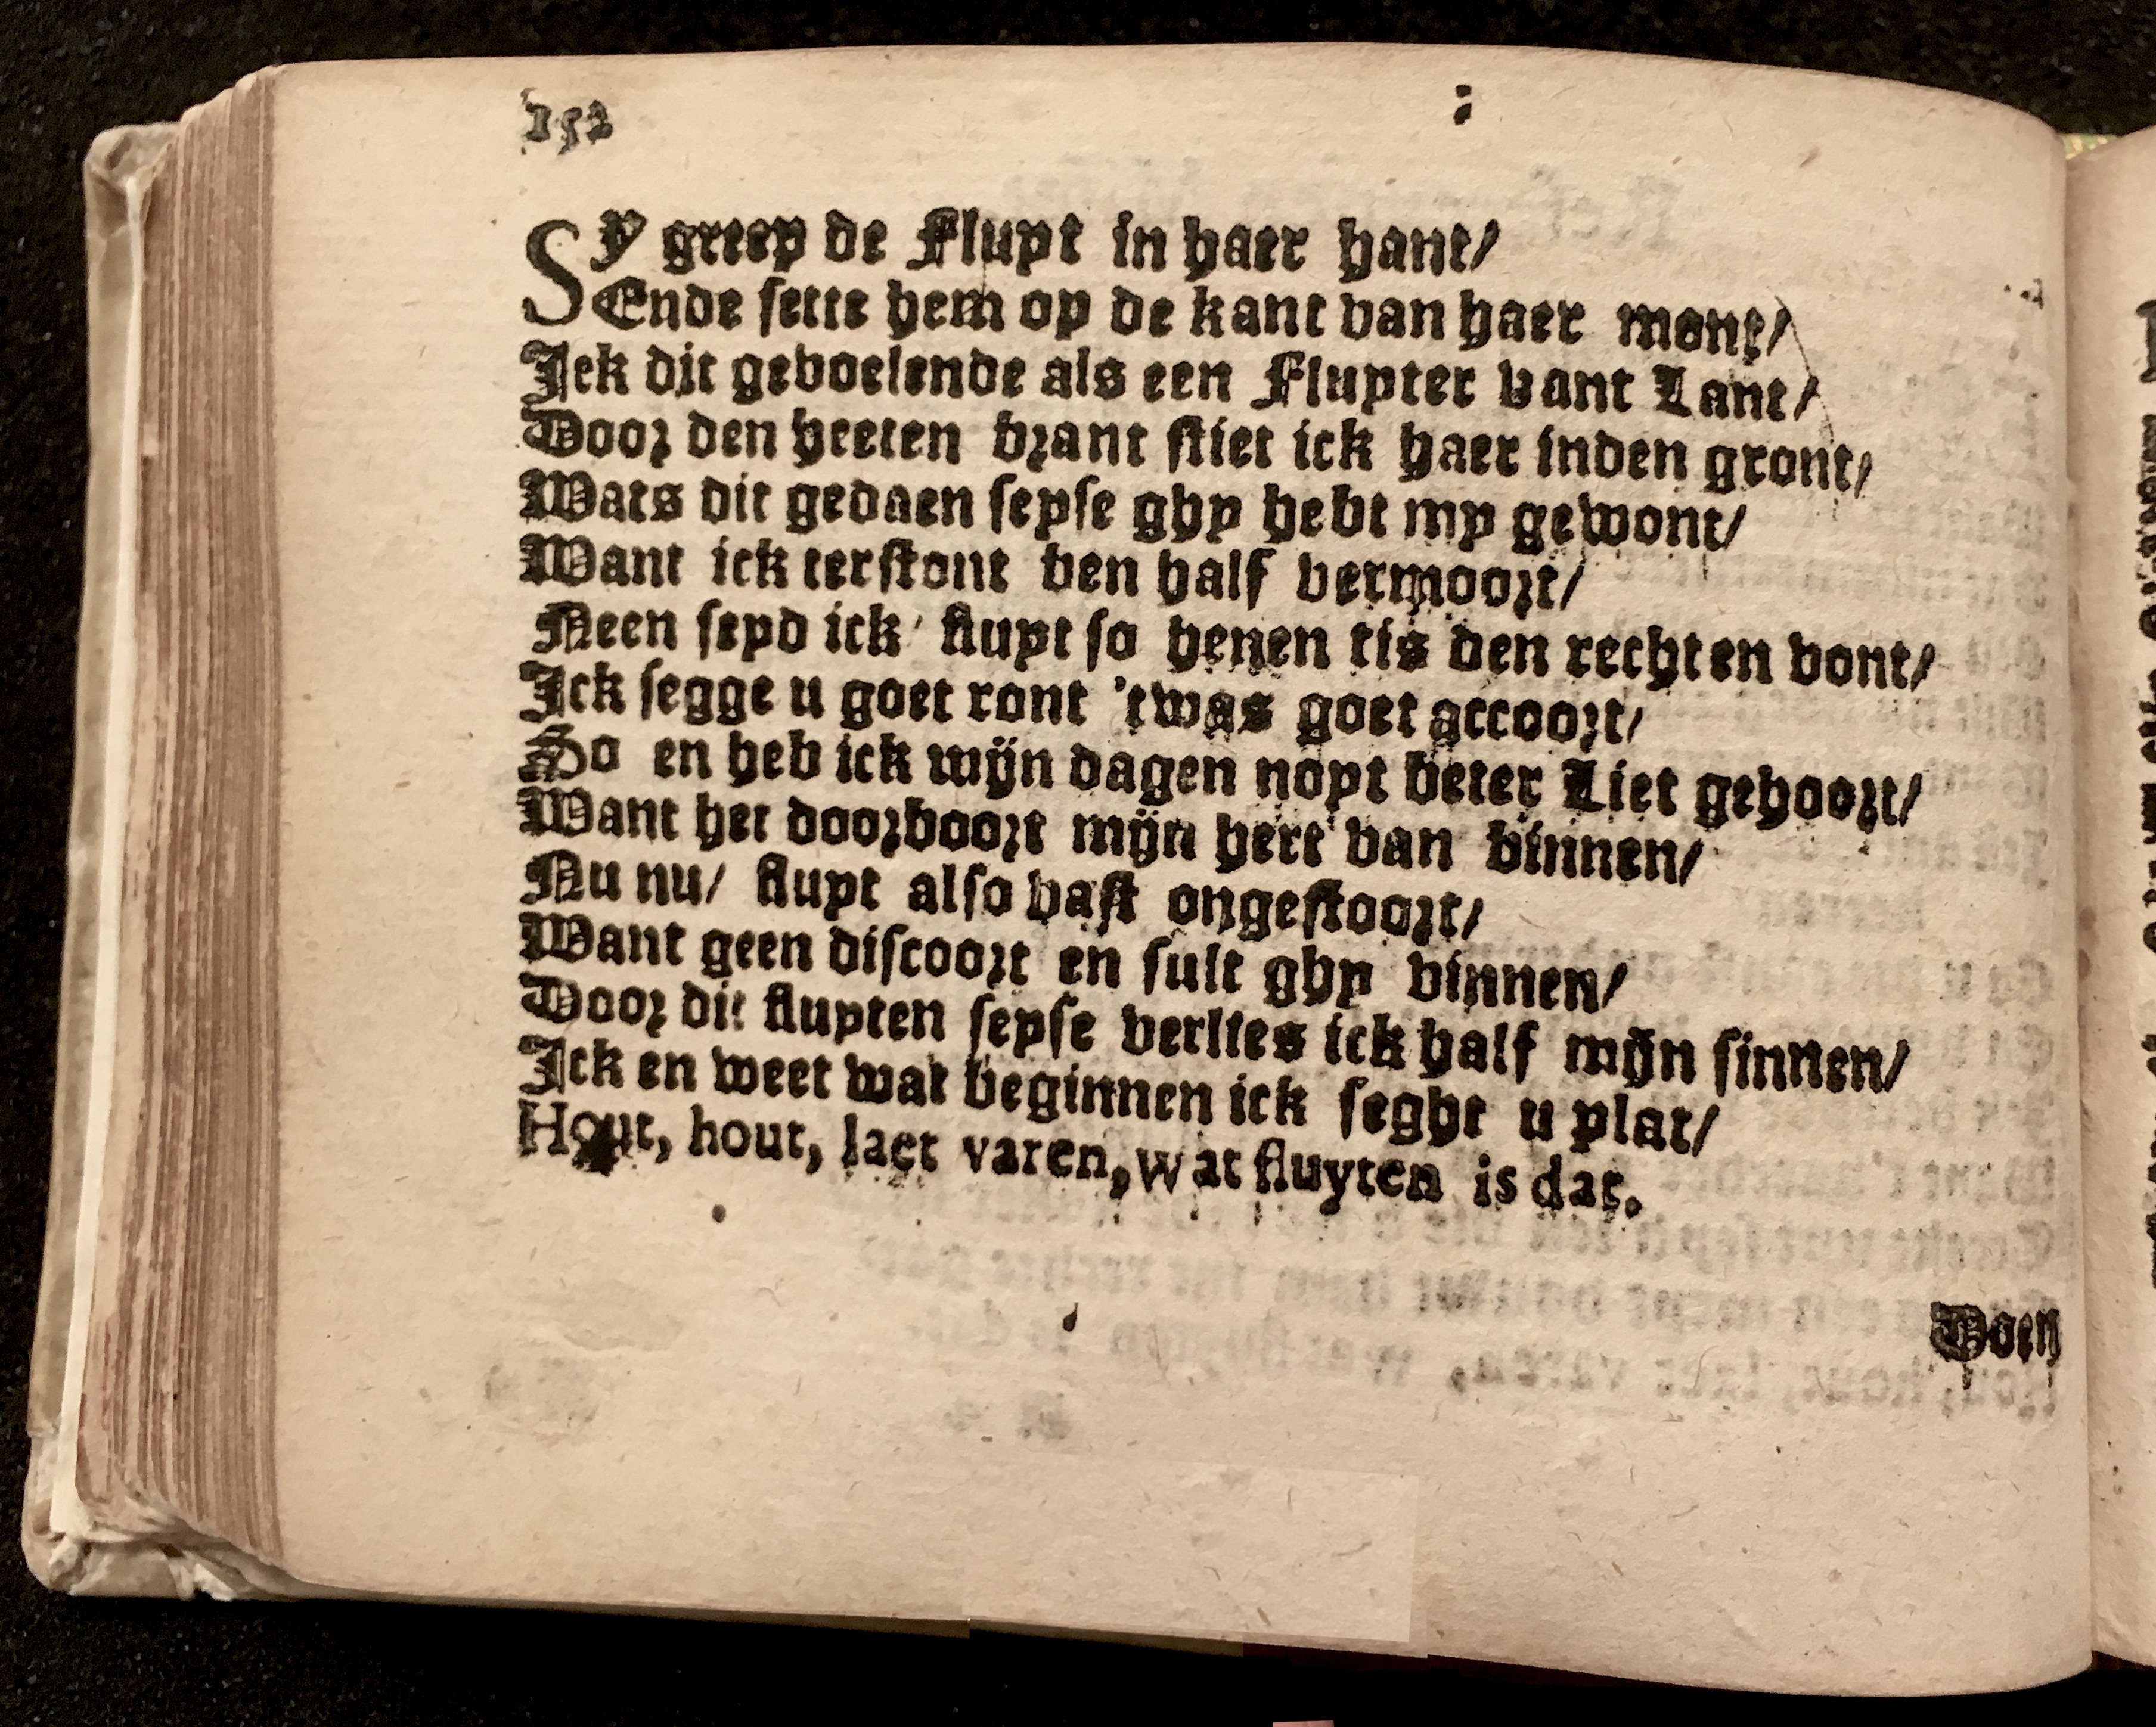 152
Sy greep de Fluyt in haer hant/
Ende sette hem op de kant van haer mont/
Ick dit gevoelende als een Fluyter vant Lant/
Door den heeten brant stiet ick haer inden gront/
Wats dit gedaen seyse ghy hebt my gewont/
Want ick terstont ben half vermoort/
Neen seyd ick/ fluyt so henen tis den rechten vont/
Ick segge u goet ront 'twas goet accoort/
So en heb ick mijn dagen noyt beter Liet gehoort/
Want het doorboort mijn hert van binnen/
Nu nu/ fluyt also vast ongestoort/
Want geen discoort en sult ghy vinnen/
Door dit fluyten seyse verlies ick half mijn sinnen/
Ick en weet wat beginnen ick seght u plat/
Hout, hout, laet varen, wat fluyten is dat.
Doen